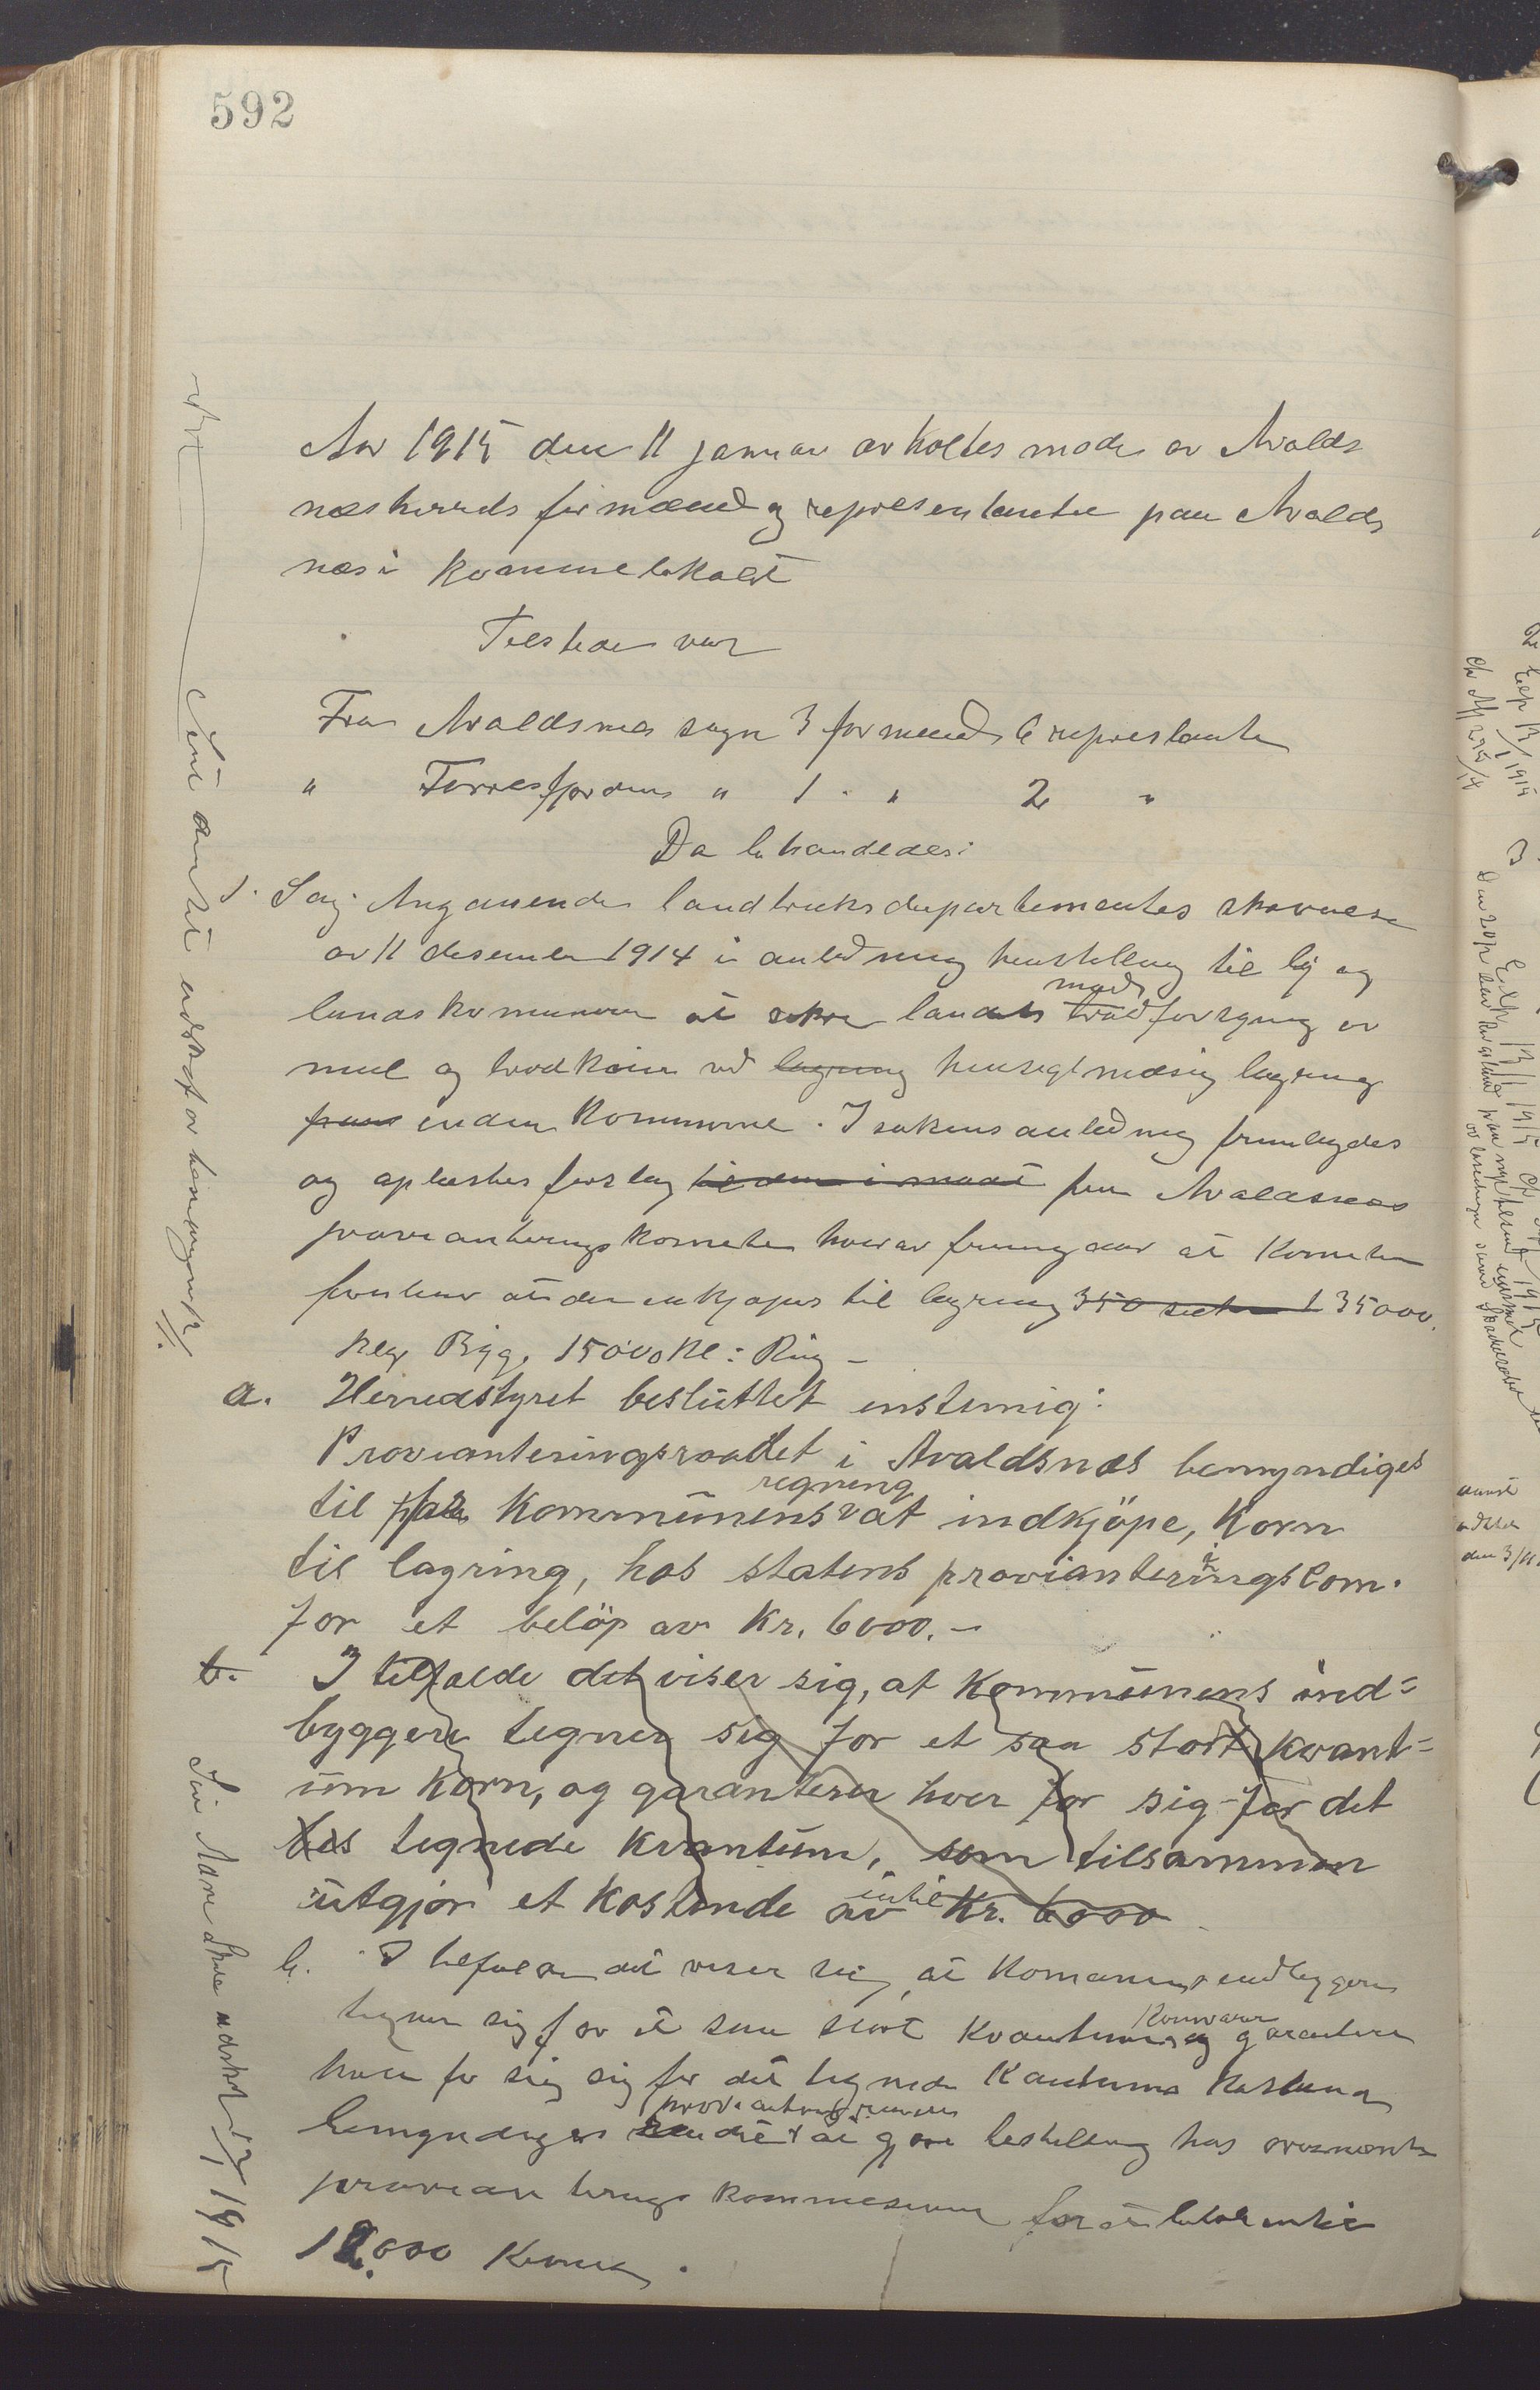 592
Aar 1915 den 11 januar avholtes møde av Avalds
næs herreds formænd og representanter paa Avalds
næs i kommunelokalet
Tilstede var
Fra Avaldsnes sogn 3 formænd 6 represtanter
" Førresfjordens " 1 " 2 "
Da behandledes:
1. Sag. Angaaende landbruksdepartementes skrivelse
av 11 desember 1914 i anledning henstilling til by og
landskommuner at sikre landets brødforsyning av
mad
mel og brødkorn ved lagring hensigtmæsig lagring
inden kommunene. I sakens anledning fremlagdes
og oplæstes forslag fra Avaldsnæs
provianteringskomite hvorav fremgaar at komiteen
at der inkjøpes til lagring 350 35000
kg Byg, 15000 kl: Rug -
a. Herredstyret besluttet enstemig:
Provianteringsraadet i Avaldsnæs bemyndiges
til for kommunens regning at indkjöpe, korn
til lagring, hos statens provianteringskom.
for et belöp av kr. 6000. -
b. I tilfælde det viser sig, at kommunens ind=
byggere tegner sig for et saa stort kvant=
um korn, og garanterer hver for sig for det
tegnede kvantum, som tilsammen
utgjör et kostende av intil kr. 6000
b. I tilfælde det viser sig, at komunens indbyggere
tegner sig for et saa stort kvantum kornvarer og garantere
hver for sig sig for det tegnede kvantums kostende
bemyndiges at gjøre bestilling hos
provianterings kommesionen for et beløb intil
12.000 kroner.
Sendt amtet utskrift av
utskrift 1915